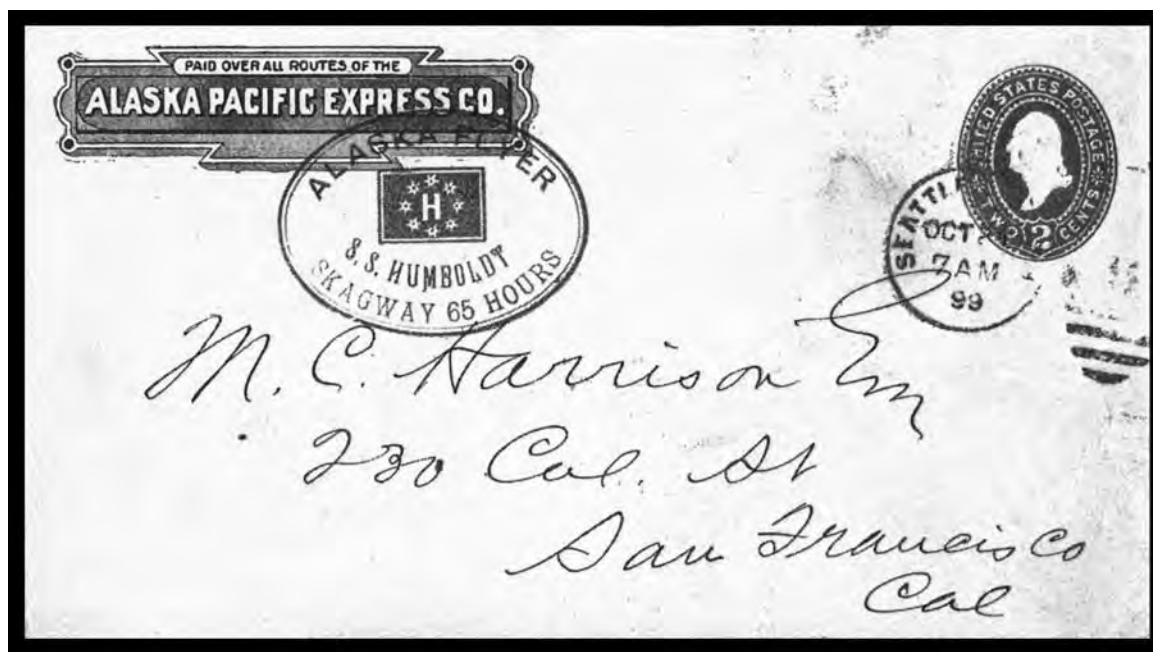 PAID OVER ALL ROUTES OF THE
ALASKA PACIFIC EXPRESS CO.
ALASKA FLYER
H
S.S. HUMBOLDT
SKAGWAY 65 HOURS
UNITED STATES POSTAGE
TWO 2 CENTS
SEATTLE
OCT
7 AM
99
M. C. Harrison
230 Cal. St
San Francisco
Cal